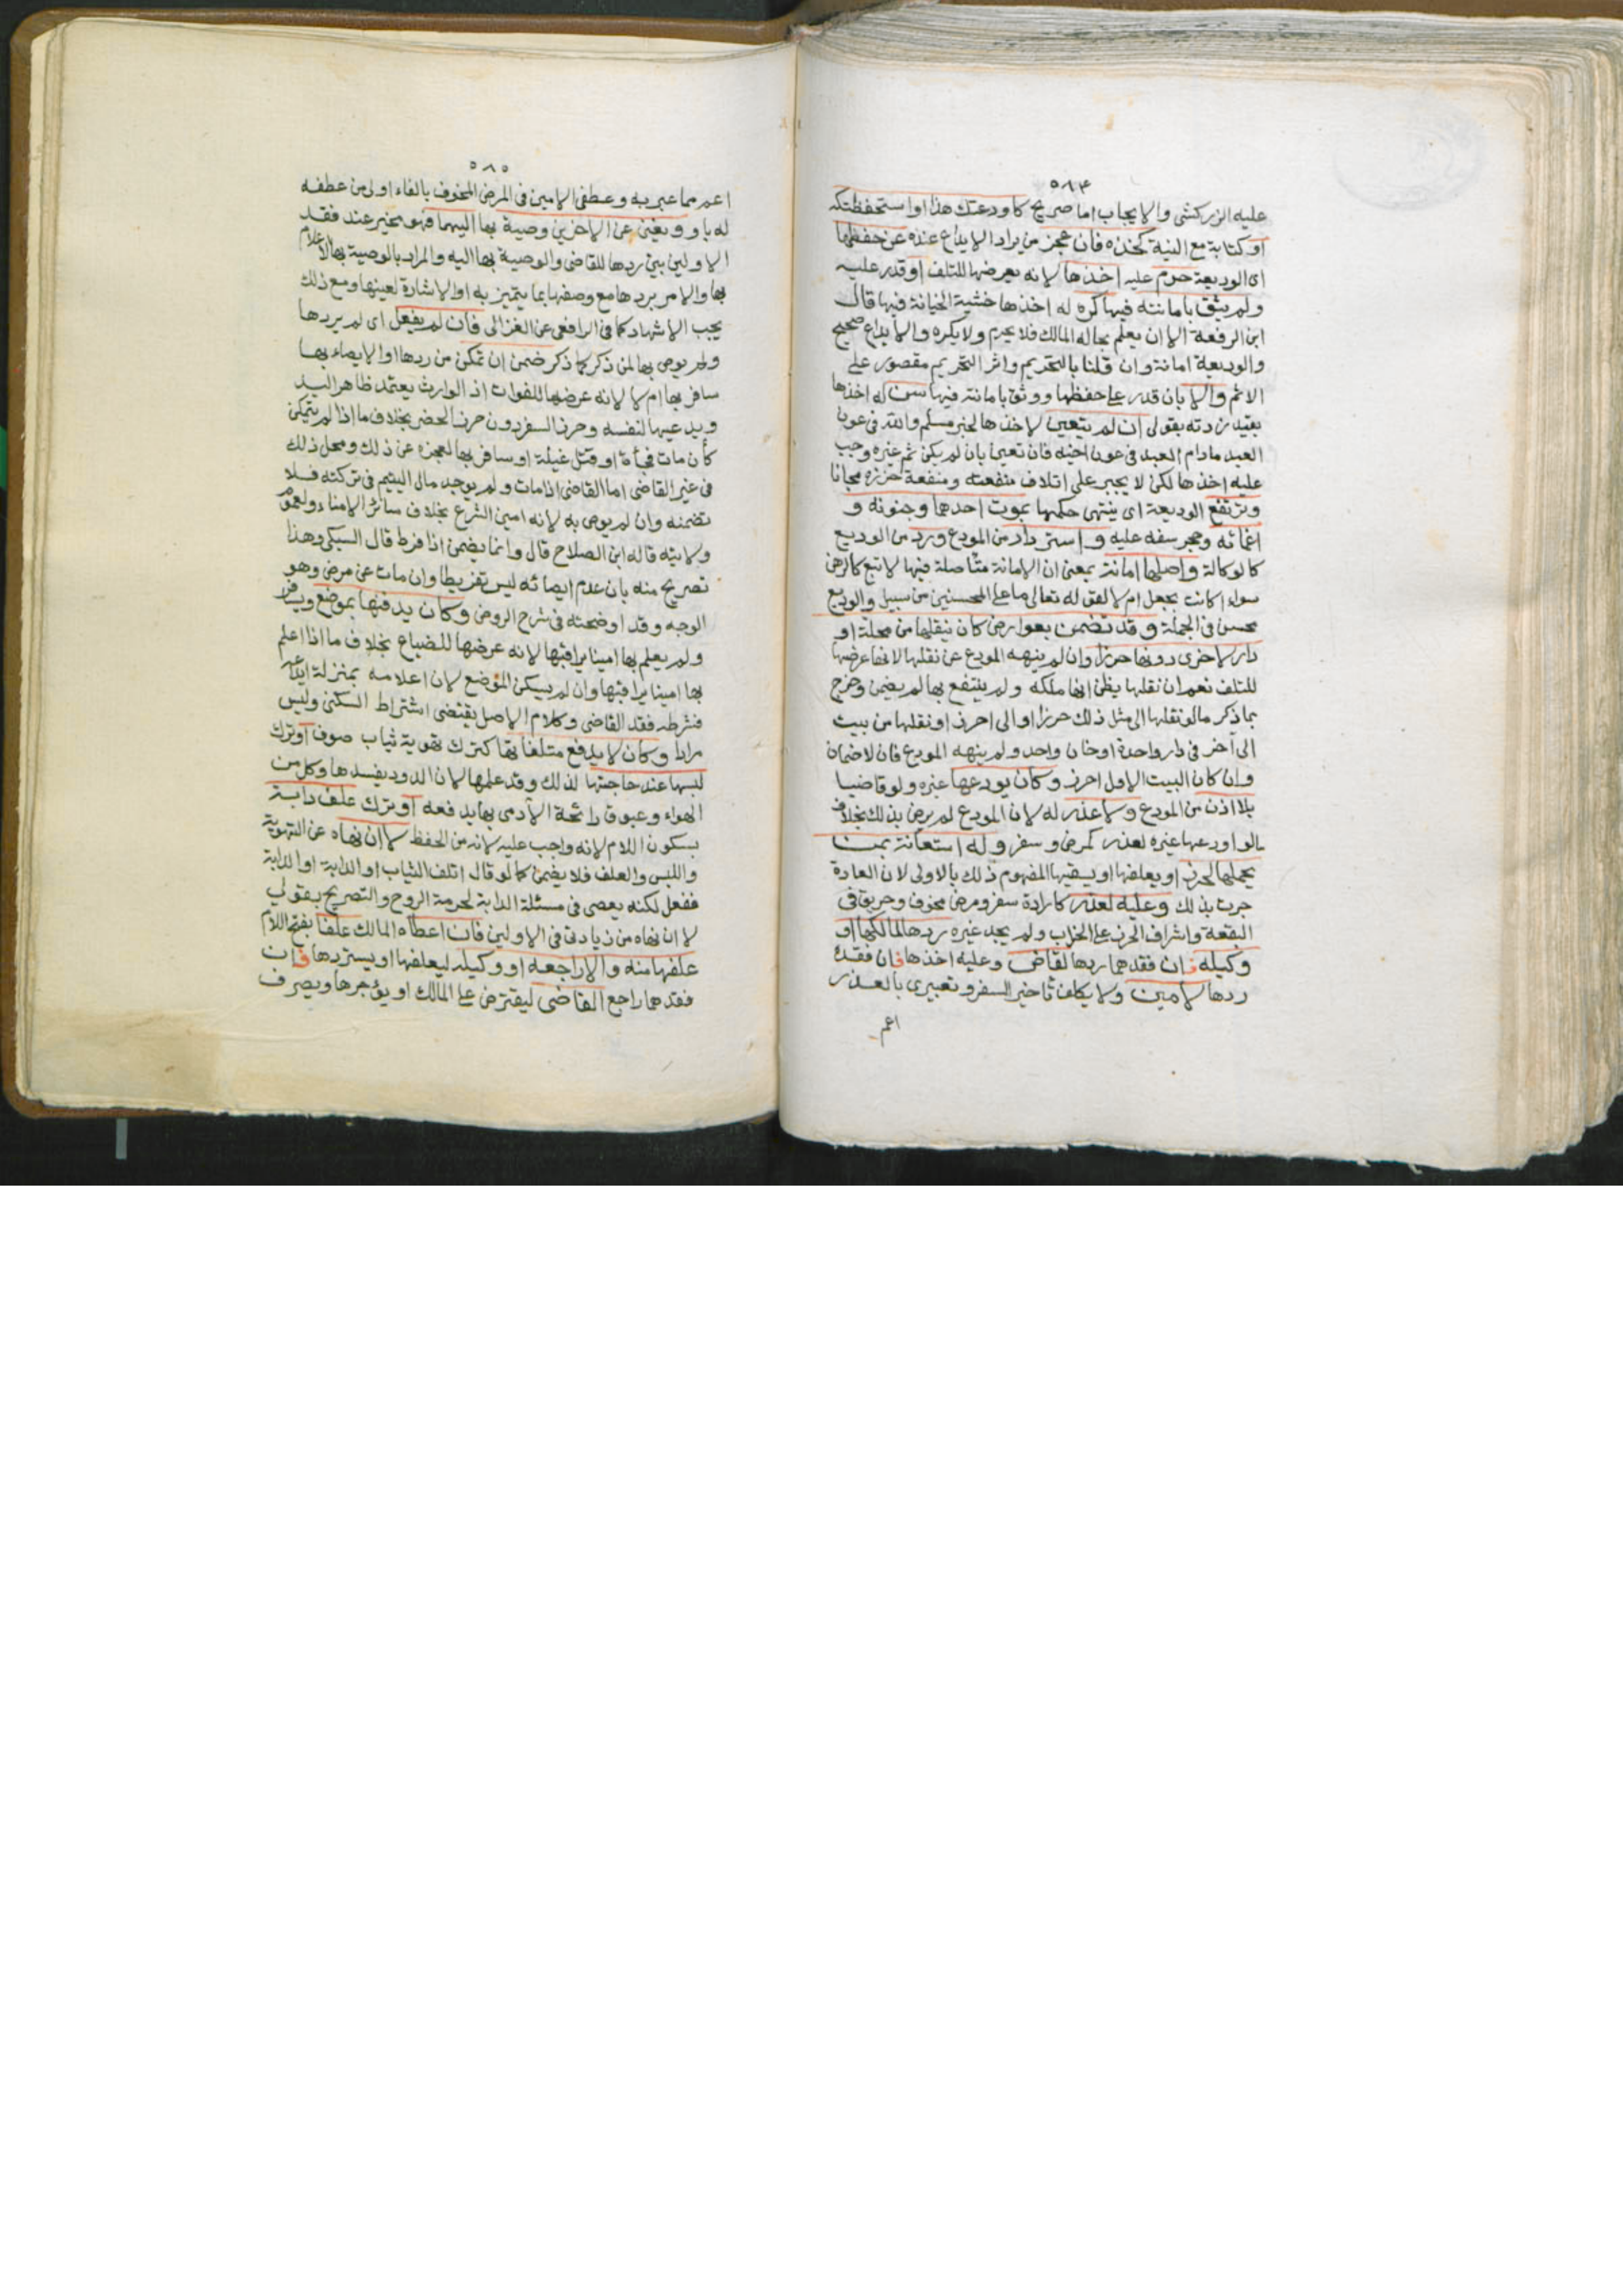 ٥٨٤
عليه الزركشي والايجاب اما صريح كاودعتك هذا او استحفظتكه
او كناية مع النية كخذه فان عجز من يراد الايداع عنده عن حفظها
اي الوديعة حرم عليه اخذها لانه يعرضها للتلف او قدر عليه
ولم يثق بامانته فيها كره له اخذها خشية الخيانة فيها قال
ابن الرفعة الا ان يعلم بحاله المالك فلا يحرم ولا يكره والايداع صحيح
والوديعة امانة وان قلنا بالتحريم واثر التحريم مقصور على
الاثم والا بان قدر على حفظها ووثق بامانته فيها سن له اخذها
بقيد زدته بقولي ان لم يتعين لاخذها لخبر مسلم والله في عون
العبد مادام العبد في عون اخيه فان تعين بان لم يكن ثم غيره وجب
عليه اخذها لكن لا يجبر على اتلاف منفعته ومنفعة حرزه مجانا
وترتفع الوديعة اي ينتهي حكمها بموت احدهما وجنونه و
اغمائه وحجر سفه عليه واسترداد من المودع ورد من الوديع
كالوكالة واصلها امانة بمعنى ان الامانة متاصلة فيها لا تبع كالرهن
سواء اكانت بجعل ام لا لقوله تعالى ما على المحسنين من سبيل والوديع
محسن في الجملة وقد تضمن بعوارض كان ينقلها من محلة او
دار لاخرى دونها حرزا وان لم ينهه المودع عن نقلها لانه عرضها
للتلف نعم ان نقلها يظن انها ملكه ولم ينتفع بها لم يضمن وخرج
بما ذكر ما لو نقلها الى مثل ذلك حرزا او الى احرز او نقلها من بيت
الى آخر في دار واحدة او خان واحد ولم ينهه المودع فان لا ضمان
وان كان البيت الاول احرز وكان يودعها غيره ولو قاضيا
بلا اذن من المودع ولا عذر له لان المودع لم يرض بذلك بخلاف
مالو اودعها غيره لعذر كمرض وسفر وله استعانة بمن
يحملها لحرز او يعلفها او يسقيها المفهوم ذلك بالاولى لان العادة
جرت بذلك وعليه لعذر كارادة سفر ومرض مخوف وحريق في
البقعة واشراف الحرز على الخراب ولم يجد غيره ردها لمالكها او
وكيله فان فقدهما ردها لقاض وعليه اخذها فان فقده
ردها لامين ولا يكلف تاخير السفر وتعبيري بالعذر
اعم
٥٨٥
اعم مما عبر به وعطفي الامين في المرض المخوف بالفاء اولى من عطفه
له باو ويغني عن الاخرين وصية بها اليهما فهو مخير عند فقد
الاولين بين ردها للقاضي والوصية بها اليه والمراد بالوصية بها الاعلام
بها والامر بردها مع وصفها بما يتميز به او الاشارة لعينها ومع ذلك
يجب الاشهاد كما في الرافعي عن الغزالي فان لم يفعل اي لم يردها
ولم يوص بها لمن ذكر كما ذكر ضمن ان تمكن من ردها او الايصاء بها
سافر بها ام لا لانه عرضها للفوات اذ الوارث يعتمد ظاهر اليد
ويدعيها لنفسه وحرز السفر دون حرز الحضر بخلاف ما اذا لم يتمكن
كأن مات فجأة او قتل غيلة او سافر بها لعجزه عن ذلك ومحل ذلك
في غير القاضي اما القاضي اذا مات ولم يوجد مال اليتيم في تركته فلا
تضمنه وان لم يوص به لانه امين الشرع بخلاف سائر الامناء ولعموم
ولايته قاله ابن الصلاح قال وانما يضمن اذا فرط قال السبكي وهذا
تصريح منه بان عدم ايصائه ليس تفريطا وان مات عن مرض وهو
الوجه وقد اوضحته في شرح الروض وكان يدفنها بموضع ويسافر
ولم يعلم بها امينا يراقبها لانه عرضها للضياع بخلاف ما اذا اعلم
بها امينا يراقبها وان لم يسكن الموضع لان اعلامه بمنزلة ايداعه
فشرطه فقد القاضي وكلام الاصل يقتضي اشتراط السكنى وليس
مرادا وكان لا يدفع متلفاتها كترك تهوية ثياب صوف او ترك
لبسها عند حاجتها لذلك وقد علمها لان الدود يفسدها وكل من
الهواء وعبوق رائحة الآدمي بها يدفعه او ترك علف دابة
بسكون اللام لانه واجب عليه لانه من الحفظ لا ان نهاه عن التهوية
واللبس والعلف فلا يضمن كما لو قال اتلف الثياب او الدابة
ففعل لكنه يعصي في مسئلة الدابة لحرمة الروح والتصريح بقولي
لا ان نهاه من زيادتي في الاولين فان اعطاه المالك علفا بفتح اللام
علفها منه والا راجعه او وكيله ليعلفها او يستردها فان
فقدهما راجع القاضي ليقترض على المالك او يؤجرها ويصرف